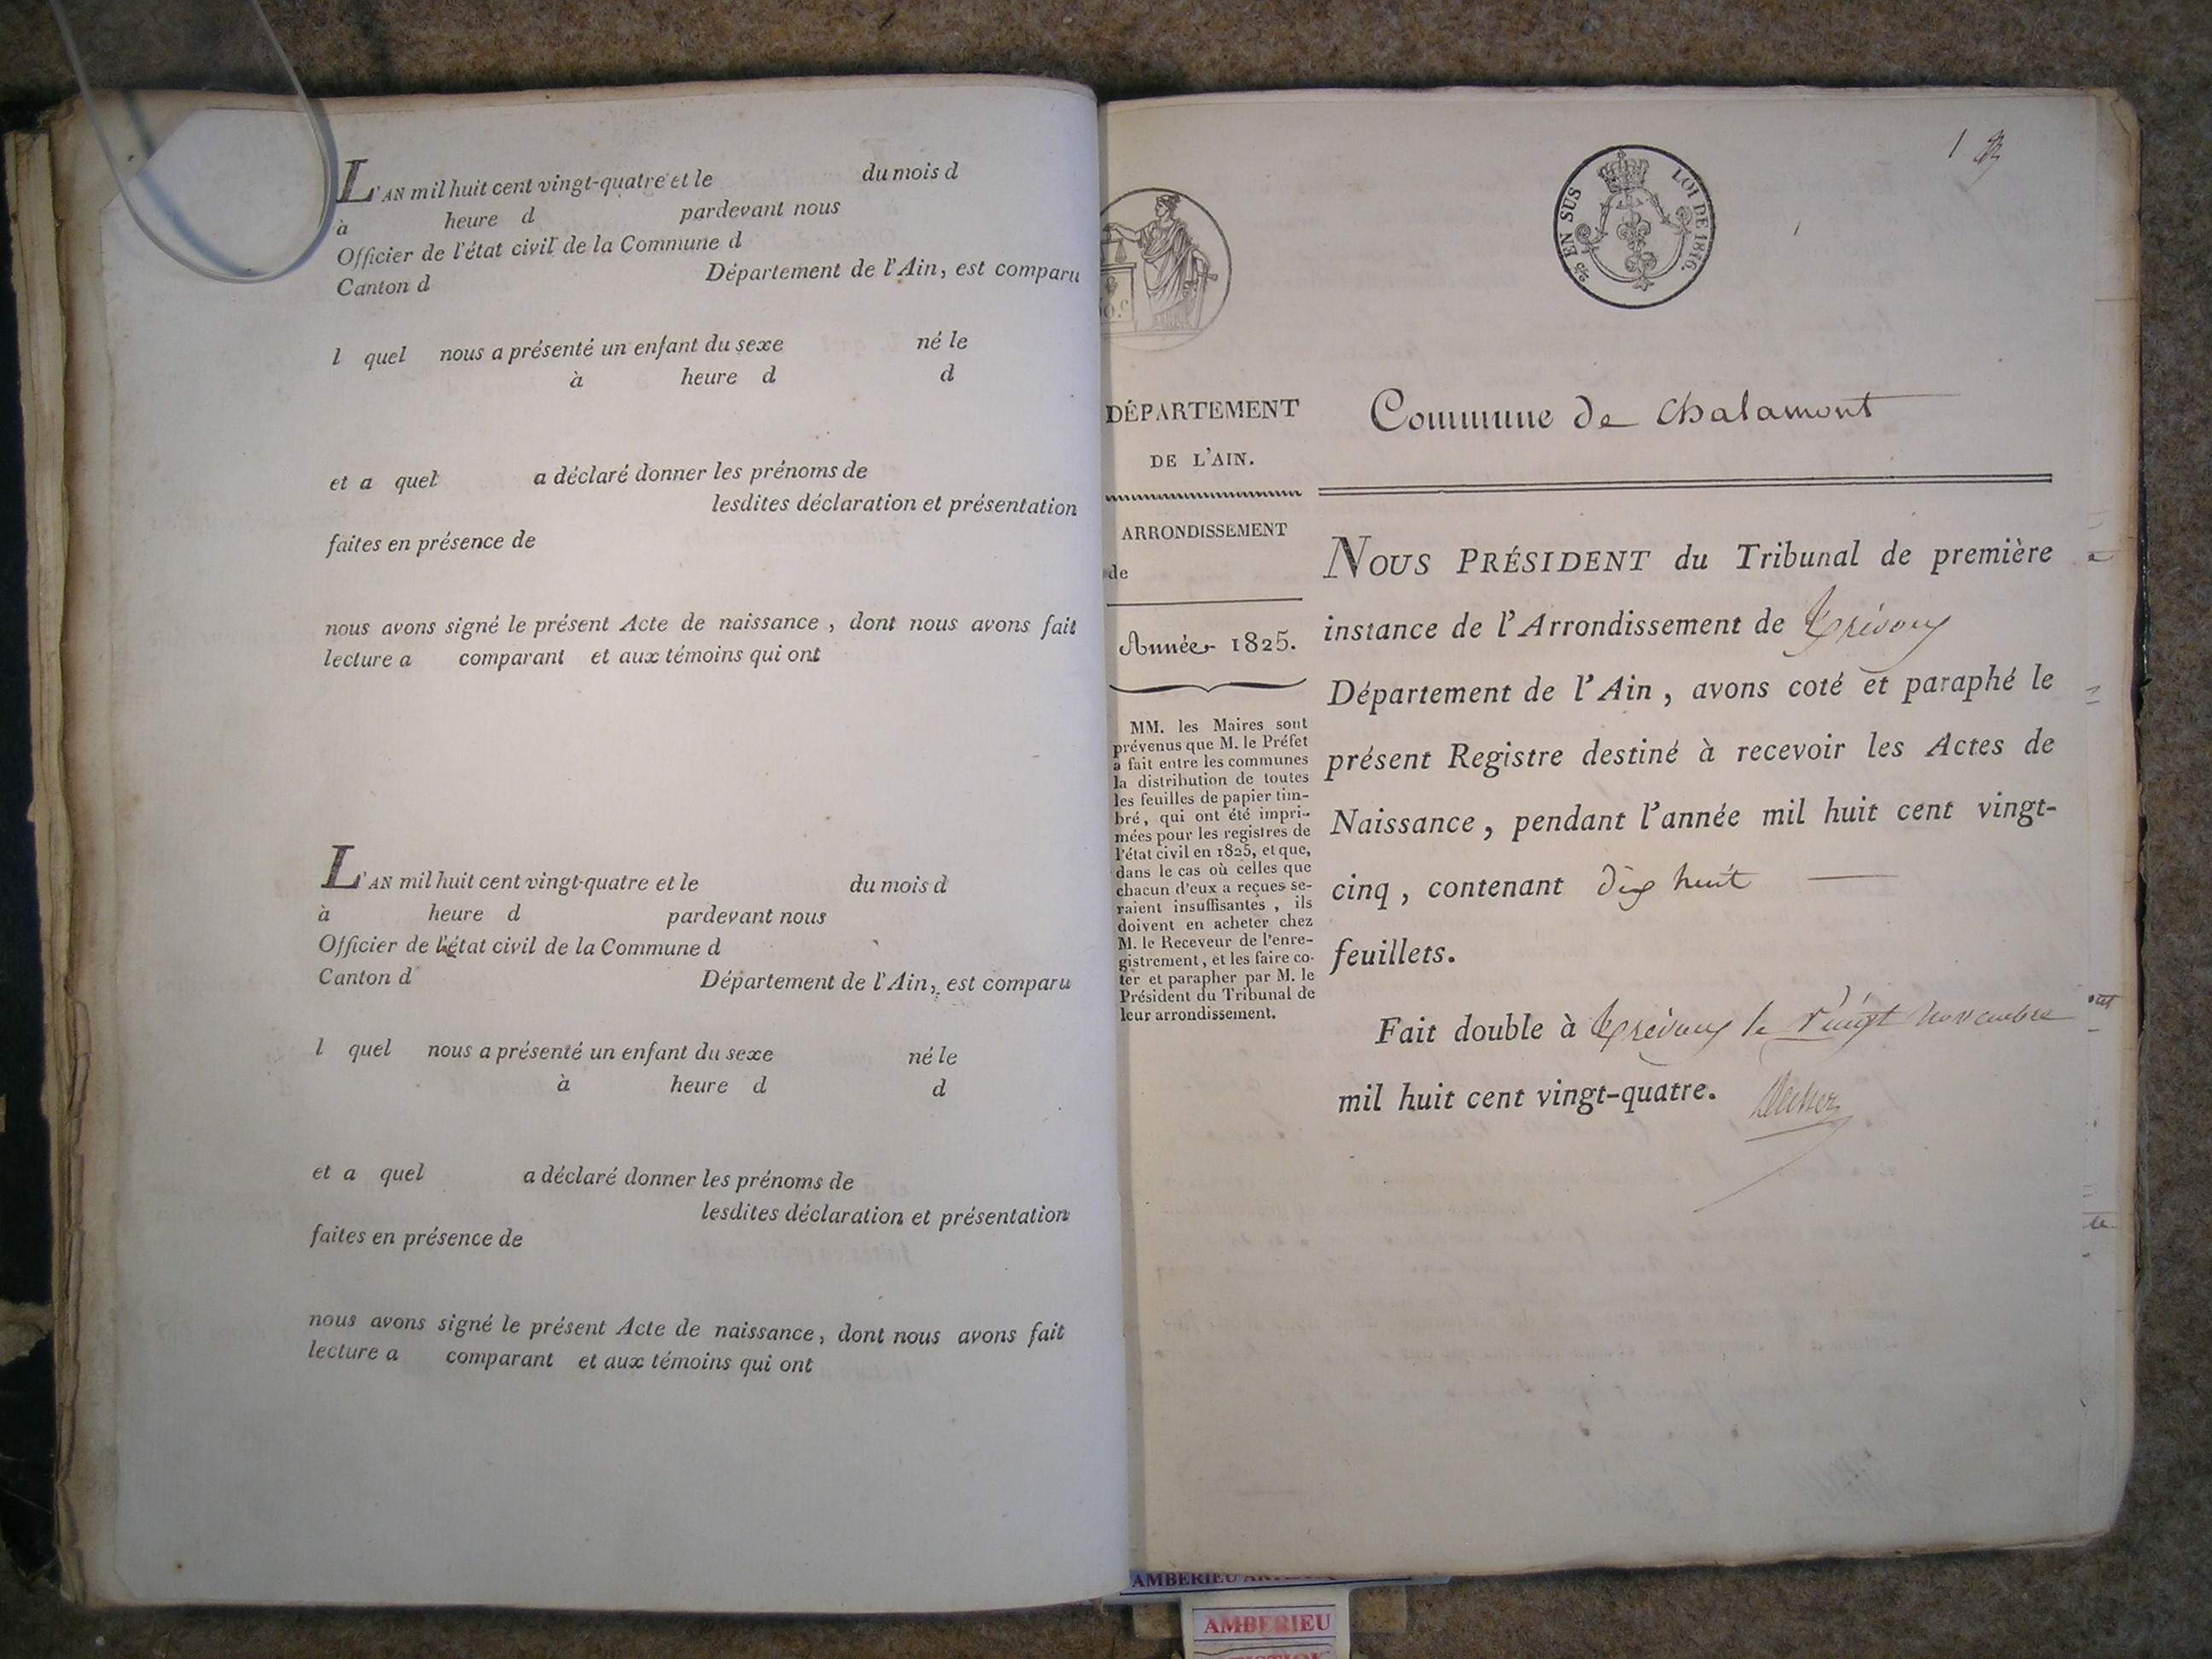 L'AN mil huit cent vingt-quatre et le du mois d
à heure d pardevant nous
Officier de l'état civil de la Commune d
Canton d Département de l'Ain, est comparu
l quel nous a présenté un enfant du sexe né le
à heure d d
et a quel a déclaré donner les prénoms de
lesdites déclaration et présentation
faites en présence de
nous avons signé le présent Acte de naissance, dont nous avons fait
lecture a comparant et aux témoins qui ont
L'AN mil huit cent vingt-quatre et le du mois d
à heure d pardevant nous
Officier de l'état civil de la Commune d
Canton d Département de l'Ain, est comparu
l quel nous a présenté un enfant du sexe né le
à heure d d
et a quel a déclaré donner les prénoms de
lesdites déclaration et présentation
faites en présence de
nous avons signé le présent Acte de naissance, dont nous avons fait
lecture a comparant et aux témoins qui ont
1
EN SUS LOI DE 1816.
DÉPARTEMENT
DE L'AIN.
ARRONDISSEMENT
de
Année 1825.
MM. les Maires sont
prévenus que M. le Préfet
a fait entre les communes
la distribution de toutes
les feuilles de papier tim-
bré, qui ont été impri-
mées pour les registres de
l'état civil en 1825, et que,
dans le cas où celles que
chacun d'eux a reçues se-
raient insuffisantes, ils
doivent en acheter chez
M. le Receveur de l'enre-
gistrement, et les faire co-
ter et parapher par M. le
Président du Tribunal de
leur arrondissement.
Commune de Chalamont
NOUS PRÉSIDENT du Tribunal de première
instance de l'Arrondissement de Trévoux
Département de l'Ain, avons coté et paraphé le
présent Registre destiné à recevoir les Actes de
Naissance, pendant l'année mil huit cent vingt-
cinq, contenant dix huit
feuillets.
Fait double à Trévoux le vingt novembre
mil huit cent vingt-quatre.
AMBERIEU
AMBERIEU